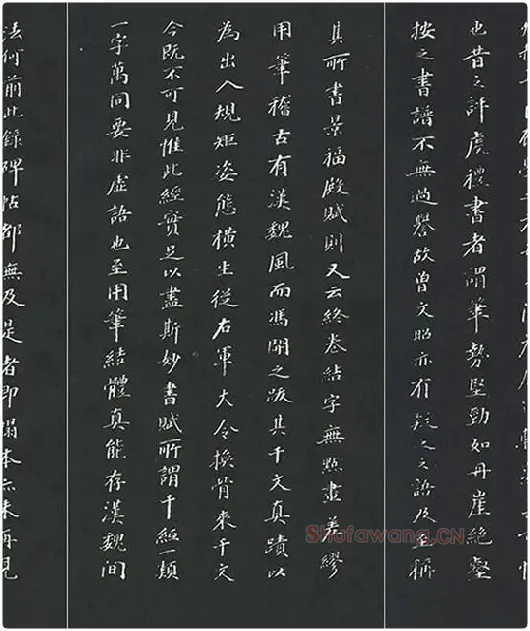 也昔之評虔禮書者謂筆勢堅勁如丹崖絕壑
按之書譜不無過譽故曾文昭亦有疑之之語及至稱
其所書景福殿賦則又云終卷結字無點畫差繆
用筆稽古有漢魏風而馮開之跋其千文真蹟以
為出入規矩姿態橫生從右軍大令換骨來千文
今既不可見惟此經實足以盡斯妙書賦所謂千經一類
一字萬同要非虛語也至用筆結體真能存漢魏間
法何前此錄碑帖都無及是者即搨本亦未再見
Shufawang.CN